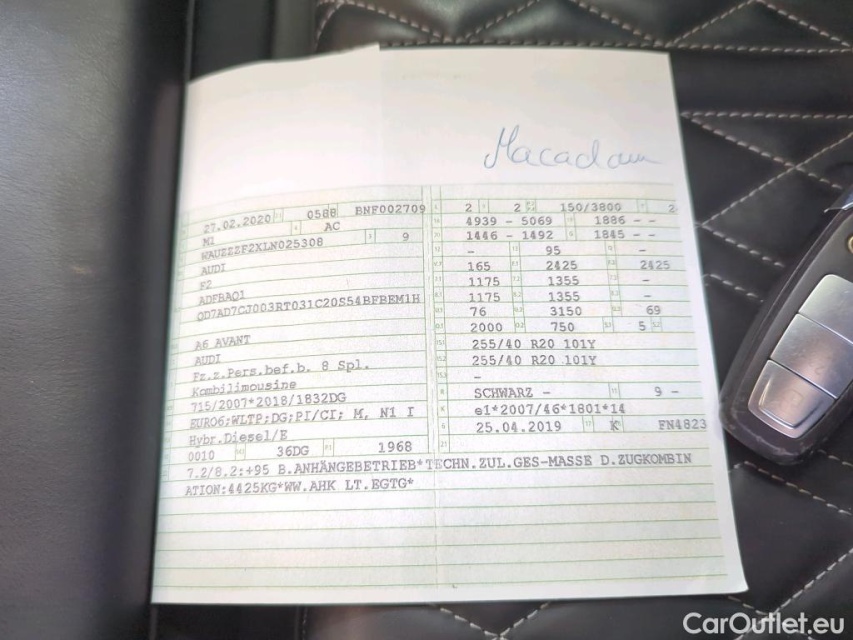 Macadam
27.02.2020 0588 BNF002709
M1 AC
WAUZZZF2XLN025308 9
AUDI
F2
ADFBAQ1
QD7AD7CJ003RT031C20S54BFBEM1H
A6 AVANT
AUDI
Fz.z.Pers.bef.b. 8 Spl.
Kombilimousine
715/2007*2018/1832DG
EURO6;WLTP;DG;PI/CI; M, N1 I
Hybr.Diesel/E
0010 36DG 1968
2 2 150/3800 2
4939 - 5069 1886 - -
1446 - 1492 1845 - -
- 95 -
165 2425 2425
1175 1355 -
1175 1355 -
76 3150 69
2000 750 5
255/40 R20 101Y
255/40 R20 101Y
-
SCHWARZ - 9 -
e1*2007/46*1801*14
25.04.2019 K FN4823
7.2/8.2:+95 B.ANHÄNGEBETRIEB*TECHN.ZUL.GES-MASSE D.ZUGKOMBIN
ATION:4425KG*WW.AHK LT.EGTG*
CarOutlet.eu